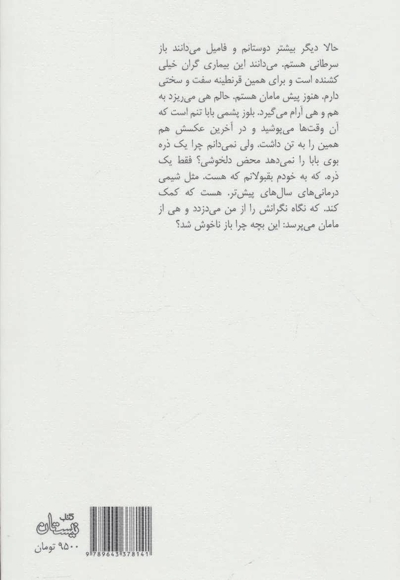 حالا دیگر بیشتر دوستانم و فامیل می‌دانند باز
سرطانی هستم. می‌دانند این بیماری گران خیلی
کشنده است و برای همین قرنطینه سفت و سختی
دارم. هنوز پیش مامان هستم. حالم هی می‌ریزد به
هم و هی آرام می‌گیرد. بلوز پشمی بابا تنم است که
آن وقت‌ها می‌پوشید و در آخرین عکسش هم
همین را به تن داشت. ولی نمی‌دانم چرا یک ذره
بوی بابا را نمی‌دهد محض دلخوشی؟ فقط یک
ذره. که به خودم بقبولانم که هست. مثل شیمی
درمانی‌های سال‌های پیش‌تر. هست که کمک
کند. که نگاه نگرانش را از من می‌دزدد و هی از
مامان می‌پرسد: این بچه چرا باز ناخوش شد؟
کتاب
نیستان
9 789643 378141
۹۵۰۰ تومان